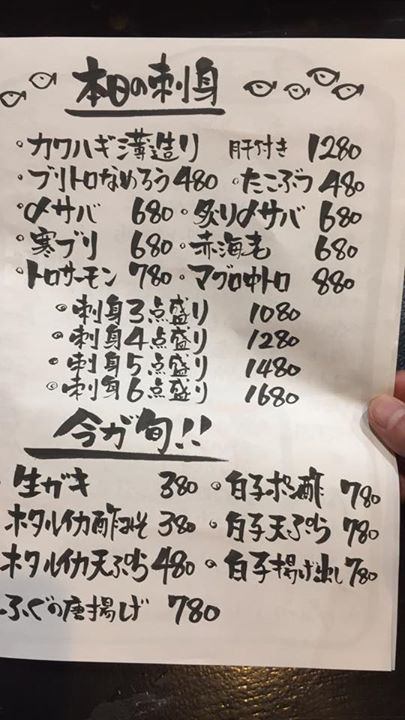 本日の刺身
・カワハギ薄造り 肝付き 1280
・ブリトロなめろう 480 ・たこぶつ 480
・〆サバ 680 ・炙り〆サバ 680
・寒ブリ 680 ・赤海老 680
・トロサーモン 780 ・マグロ中トロ 880
◎刺身3点盛り 1080
◎刺身4点盛り 1280
◎刺身5点盛り 1480
◎刺身6点盛り 1680
今が旬!!
生ガキ 380 ・白子ポン酢 780
ホタルイカ酢みそ 380 ・白子天ぷら 780
ホタルイカ天ぷら 480 ・白子揚げ出し 780
ふぐの唐揚げ 780